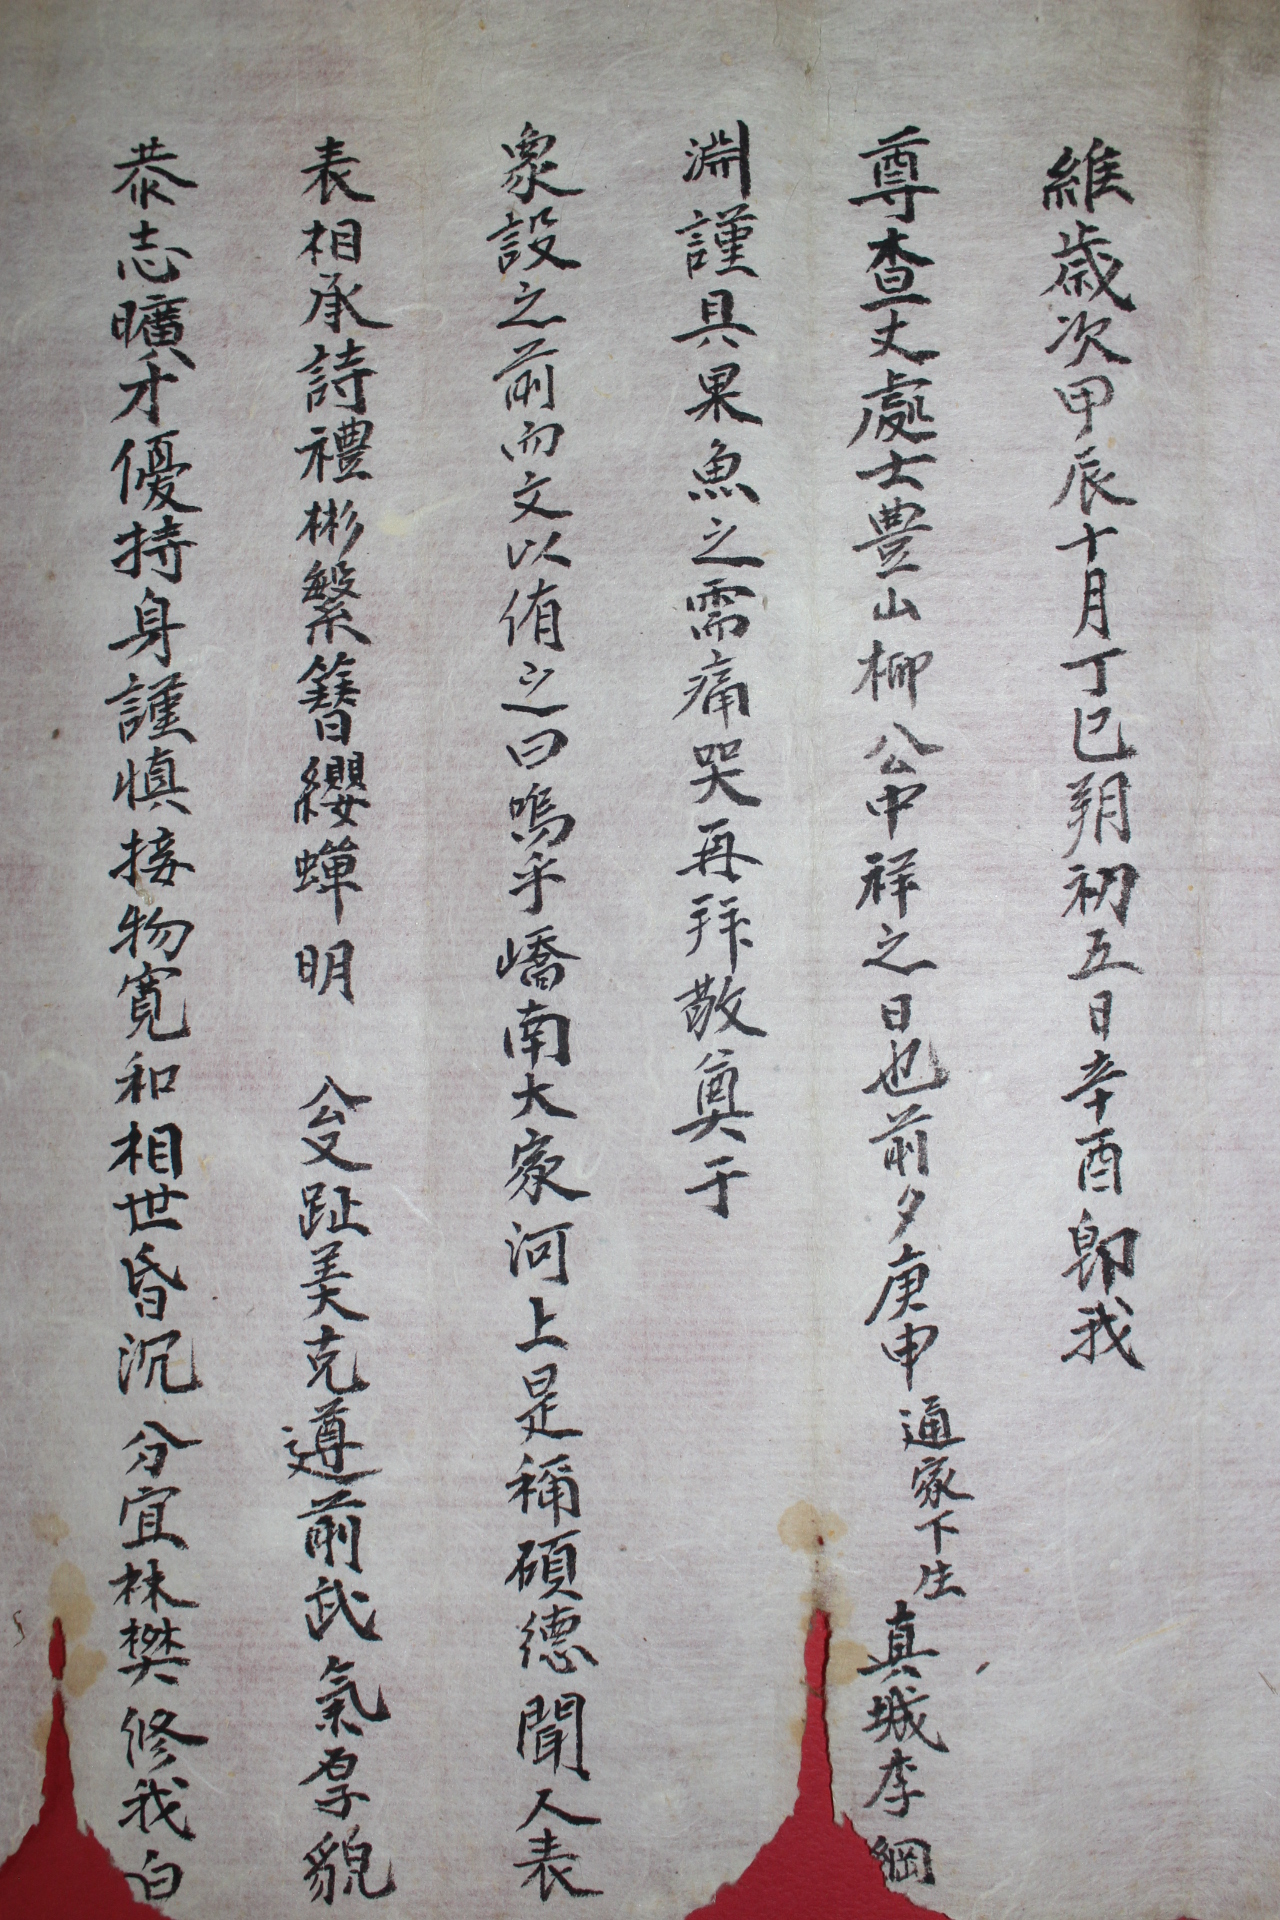 維歲次甲辰十月丁巳朔初五日辛酉卽我
尊查丈處士豊山柳公中祥之日也前夕庚申通家下生真城李綱
淵謹具果魚之需痛哭再拜敬奠于
象設之前而文以侑之曰嗚乎嶠南大家河上是稱碩德聞人表
表相承詩禮彬繁簪纓蟬明 公又趾美克遵前武氣厚貌
恭志曠才優持身謹慎接物寬和相世昏沉分宜林樊修我白